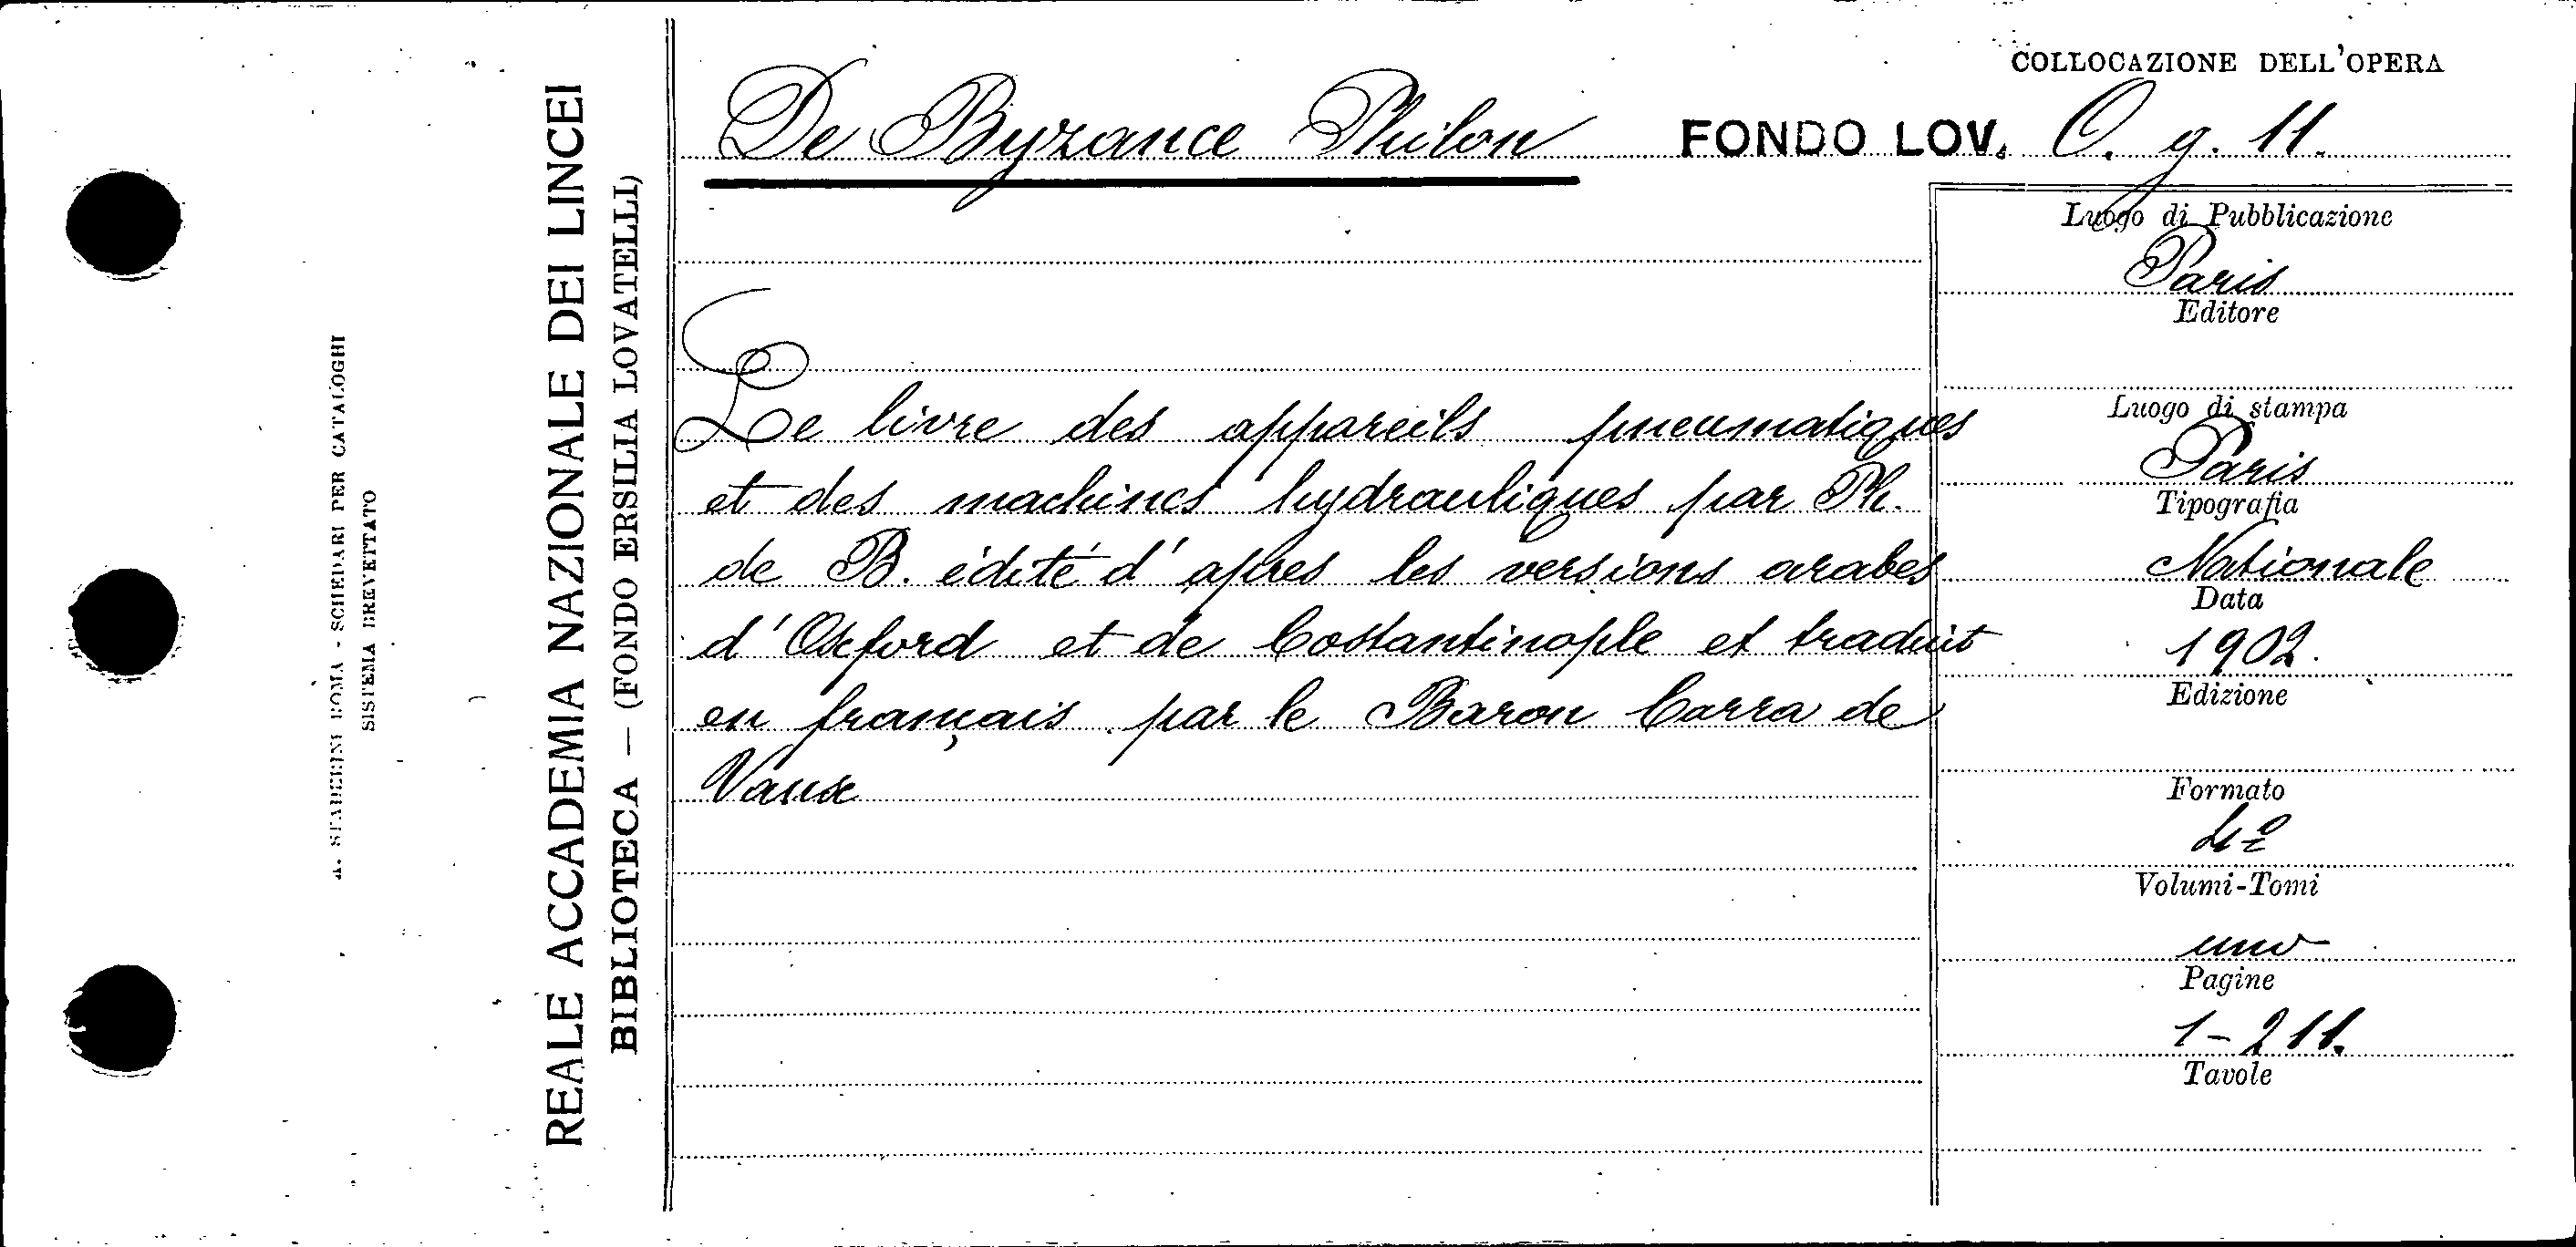 COLLOCAZIONE DELL'OPERA
De Byzance Philon
FONDO LOV. O. g. 11.
Le livre des appareils pneumatiques
et des machines hydrauliques par Ph.
de B. édité d'apres les versions arabes
d'Oxford et de Costantinople et traduit
en français par le Baron Carra de
Vaux
Luogo di Pubblicazione
Paris
Editore
Luogo di stampa
Paris
Tipografia
Nationale
Data
1902.
Edizione
Formato
4º
Volumi-Tomi
uno
Pagine
1-211.
Tavole
REALE ACCADEMIA NAZIONALE DEI LINCEI
BIBLIOTECA — (FONDO ERSILIA LOVATELLI)
A. STADERINI ROMA - SCHEDARI PER CATALOGHI
SISTEMA BREVETTATO